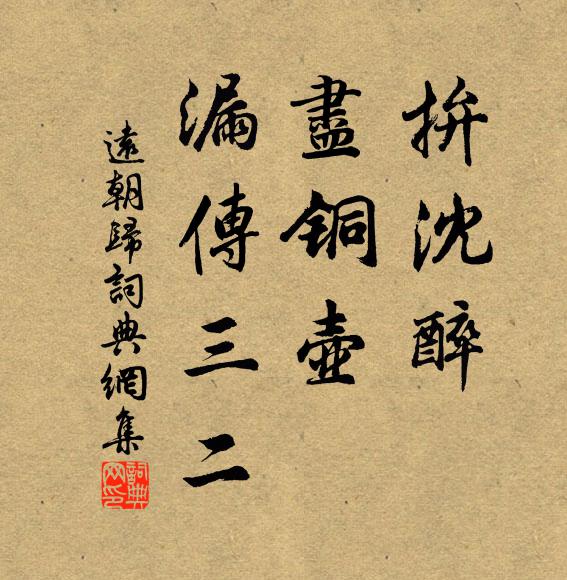 拚沈醉
盡銅壺
漏傳三二
遠朝歸詞典網集
詞典網印